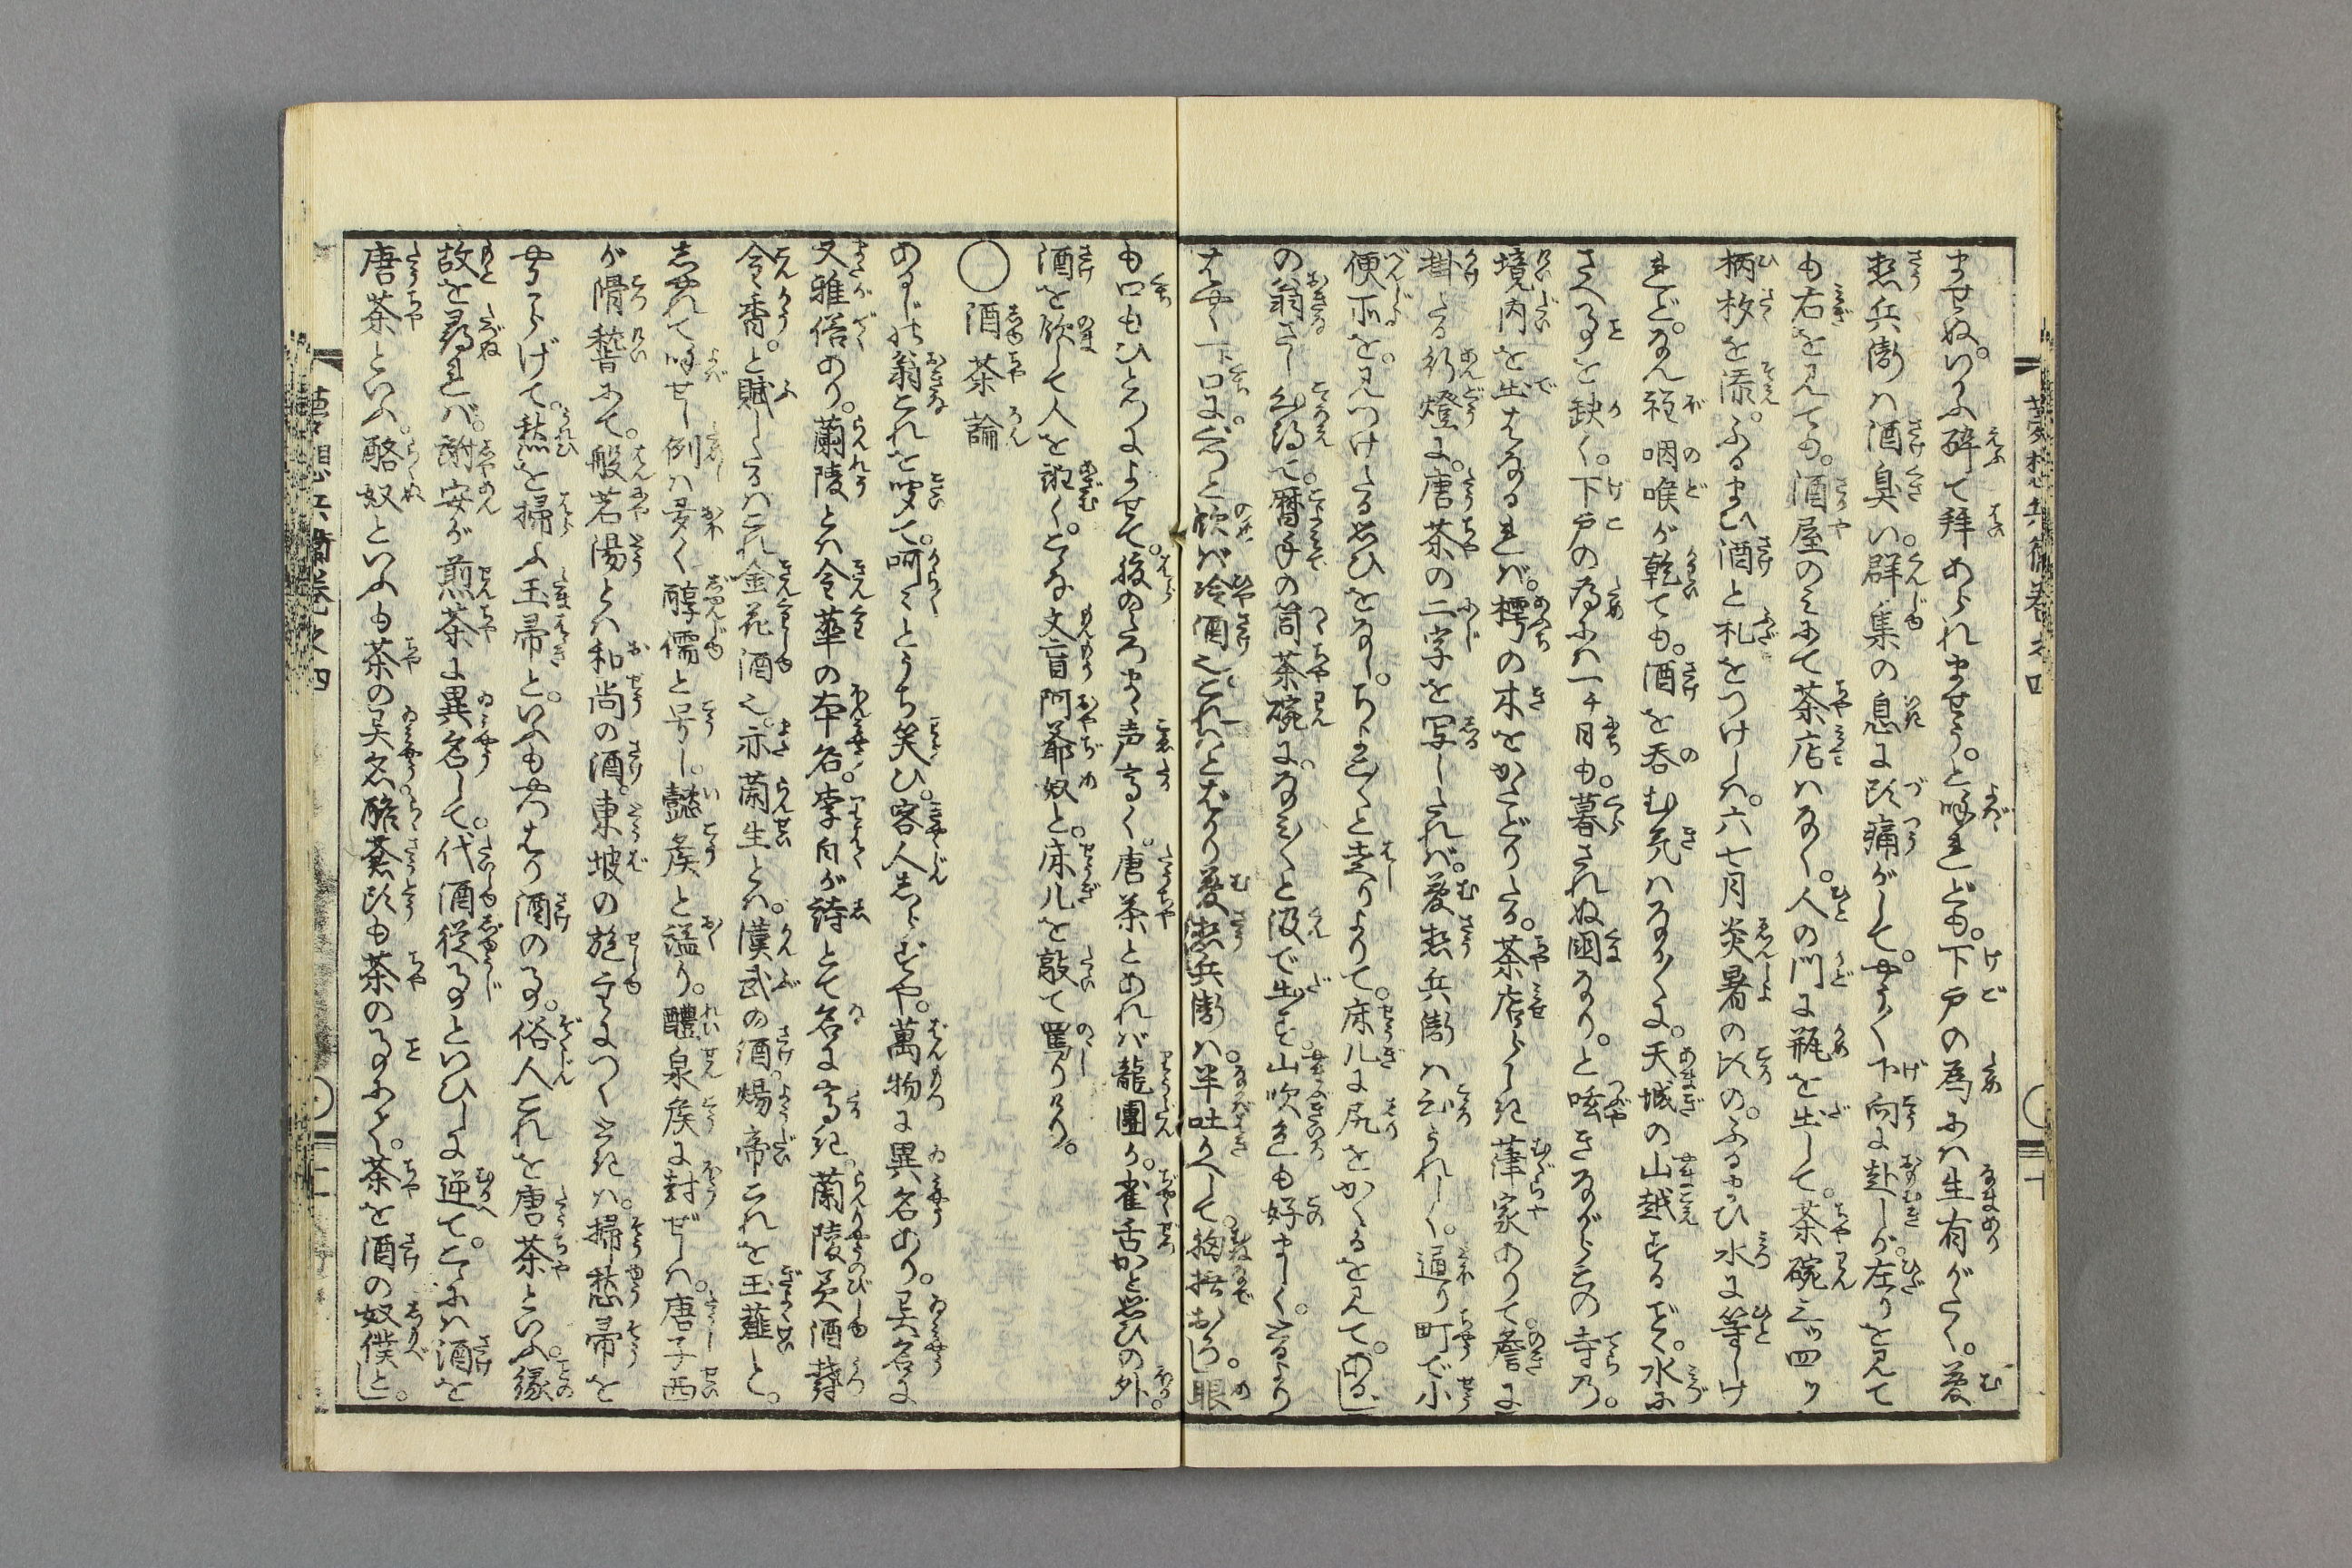 夢想兵衛巻之四
ませぬ。いかに酔て拝あられませう。と呼れども。下戸の為には生有がたく。夢
想兵衛は酒臭い。群集の息に頭痛がして。やうやく下向に赴しが。左りを見て
も右を見ても。酒屋のみにて茶店はなく。人の門に瓶を出して。茶碗三ツ四ツ
柄杓を添。ふるまひ酒と札をつけしは。六七月炎暑の比の。ふるまひ水に等しけ
れど。なん程咽喉が乾ても。酒を呑む気はなかりき。天城の山越するごとく。水に
さへ事を缺く。下戸の為には一チ日も。暮されぬ国なり。と呟きながらこの寺の。
境内を出はなるれば。樗の木をかたどりたる。茶店らしき葎家ありて。簷に
掛たる行燈に。唐茶の二字を写したれば。夢想兵衛は心うれしく。通り町で小
便所を。見つけたる思ひをなし。ちよこ〳〵と走りよりて。床几に尻をかくるを見て。ある「じ」
の翁さし心得て。暦手の筒茶碗に。なみ〳〵と汲で出す。山吹色も好ましく。
はやく一ト口に。ぐつと飲ば冷酒也。これはとばかり夢想兵衛は。半吐かへして胸撫おろし。眼
も口もひとつによせて。腹のたつまゝ声高く。唐茶とあれば龍團か。雀舌かと思ひの外。
酒を飲して人を欺く。こな文盲阿爺奴と。床几を敲て罵りけり。
○酒茶論
あるじの翁これを聞て。呵々とうち笑ひ。客人しらずや。萬物に異名あり。異名に
又雅俗あり。蘭陵とは今華の本名。李白が詩とて名に高き。蘭陵美酒鬱
金香。と賦したるはこれ金花酒也。亦蘭生とは。漢武の酒。煬帝これを玉薤と。
しやれて呼せし例は多く。醇儒と号し。懿侯と謚り。醴泉侯に封ぜしは。唐子西
が滑稽にて。般若湯とは和尚の酒。東坡の施主につくときは。掃愁帚を
やはらげて。愁を掃ふ玉帚と。いふもやつぱり酒の事。俗人これを唐茶といふ。縁
故を尋れば。謝安が煎茶に異名して。代酒從事といひしに逆て。こゝには酒を
唐茶といふ。酪奴といふも茶の異名。酪蒼頭も茶の事にて。茶を酒の奴僕と。
夢想兵衛巻之四